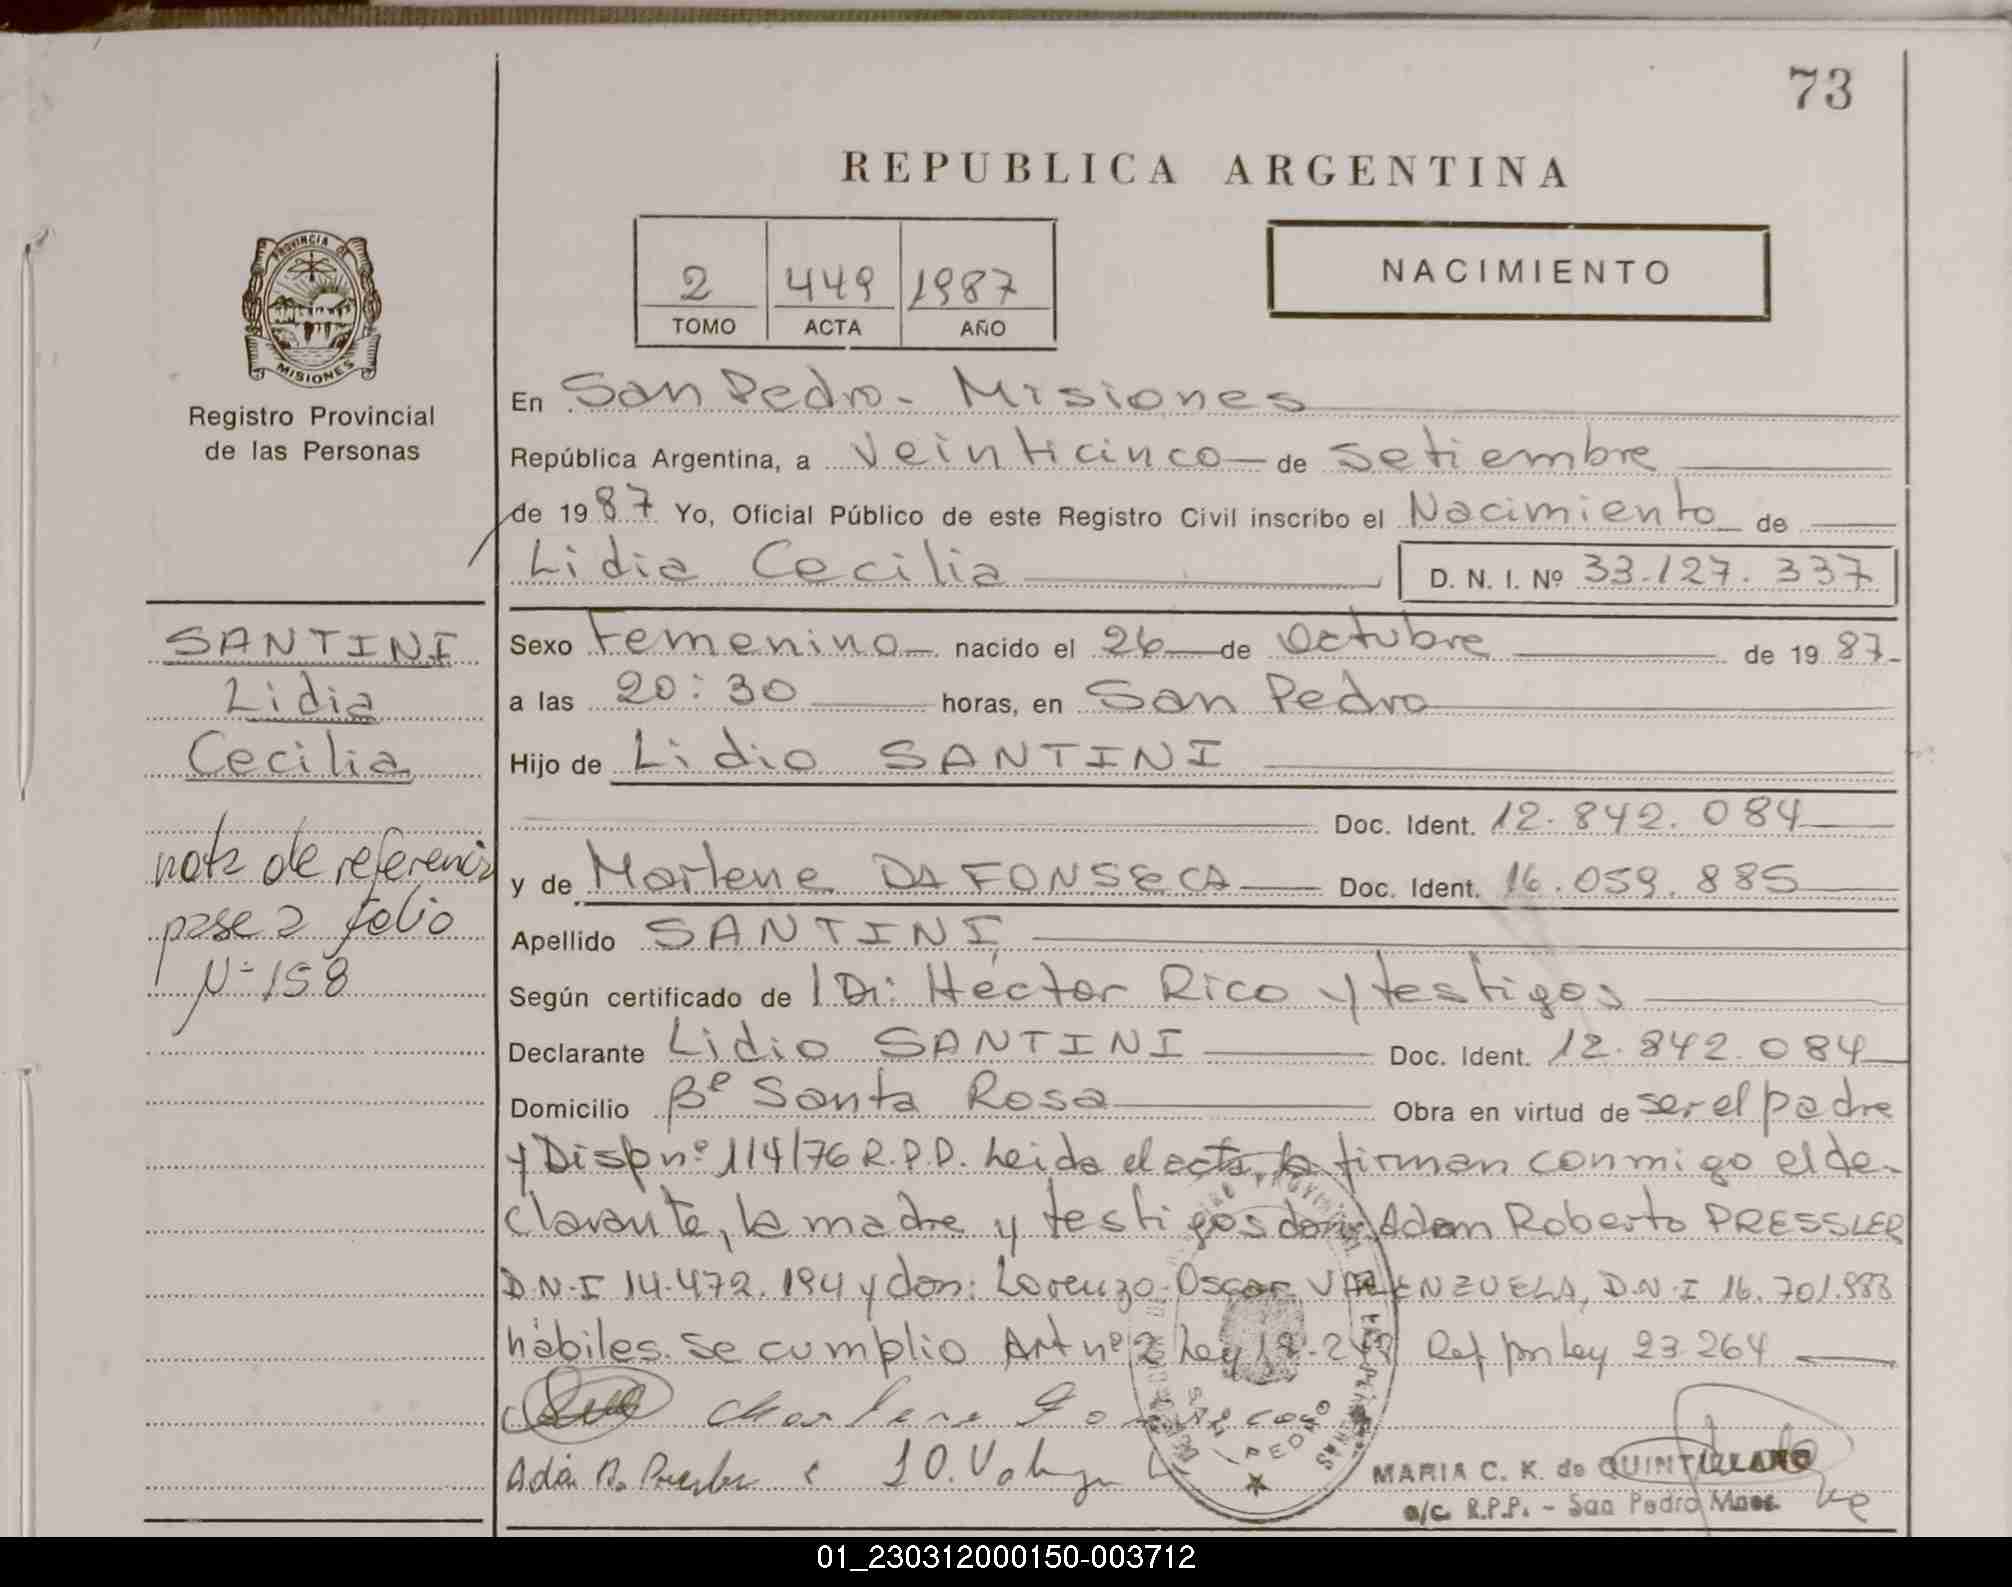 73
REPUBLICA ARGENTINA
PROVINCIA DE
MISIONES
Registro Provincial
de las Personas
2 449 1987
TOMO ACTA AÑO
NACIMIENTO
En San Pedro - Misiones
República Argentina, a Veinticinco de Setiembre
de 1987 Yo, Oficial Público de este Registro Civil inscribo el Nacimiento de
Lidia Cecilia D. N. I. Nº 33.127.337
SANTINI
Lidia
Cecilia
nota de referencia
pase a folio
Nº 158
Sexo Femenino nacido el 26 de Octubre de 1987
a las 20:30 horas, en San Pedro
Hijo de Lidio SANTINI
Doc. Ident. 12.842.084
y de Marlene DA FONSECA Doc. Ident. 16.059.885
Apellido SANTINI
Según certificado de Dr: Héctor Rico y testigos
Declarante Lidio SANTINI Doc. Ident. 12.842.084
Domicilio Bº Santa Rosa Obra en virtud de ser el padre
y Disp nº 114/76 R.P.P. Leida el acta, la firman conmigo el de-
clarante, la madre y testigos don: Adan Roberto PRESSLER
D.N.I 14.472.194 y don: Lorenzo Oscar VALENZUELA, D.N.I 16.701.983
hábiles. Se cumplio Art nº 2 Ley 18.248 Ref por Ley 23.264
SAN PEDRO
MARIA C. K. de QUINTILLANO
a/c. R.P.P. - San Pedro Mnes.
01_230312000150-003712